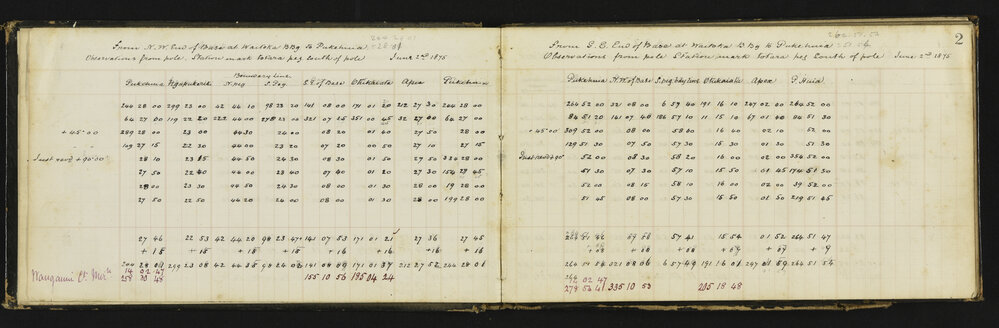 From N.W. End of Base at Waitoka B Bdy to Pukehuia
Observations from pole. Station mark totara peg South of pole June 2nd 1875
Boundary line
Pukehuia Ngapukerih N. peg S. Peg S.E. of Base Otukaiata Apex Pukehuia
244 28 00 299 23 00 42 44 10 98 23 20 141 08 00 171 01 20 212 27 30 244 28 00
64 27 00 119 22 20 222 44 00 278 23 00 321 07 25 351 00 45 32 27 00 64 27 00
+45°00 289 28 00 23 00 44 30 24 00 08 20 01 40 27 50 28 00
109 27 15 22 30 44 00 23 20 07 20 01 00 27 10 27 15
Inst revd +90°00 28 10 23 15 44 50 24 30 08 30 01 50 27 50 324 28 00
27 50 22 40 44 00 23 40 07 40 01 20 27 30 154 27 45
28 00 23 30 44 50 24 30 08 00 01 30 28 00 19 28 00
27 50 22 50 44 20 24 00 08 00 01 30 28 00 199 28 00
27 46 22 53 42 44 20 98 23 47 141 07 53 171 01 21 27 36 27 45
+15 +15 +15 +15 +15 +16 +16 +16
244 28 01 299 23 08 42 44 35 98 24 02 141 08 09 171 01 37 212 27 52 244 28 01
Wanganui Ct Mern 14 02 47
258 30 48 155 10 56 185 04 24
2
From S.E. End of Base at Waitoka B Bdy to Pukehuia
Observations from pole Station mark totara peg South of pole June 2nd 1875
Pukehuia N.W. of Base S. peg bdy line Otukaiata Apex P. Huia
264 52 00 321 08 00 6 57 40 191 16 10 247 02 00 264 52 00
84 51 20 141 07 40 186 57 10 11 15 10 67 01 40 84 51 30
+45°00 309 52 00 08 00 58 00 16 40 02 10 52 00
129 51 30 07 50 57 30 15 30 01 30 51 30
Inst revd +90° 52 00 08 30 58 20 16 00 02 00 354 52 00
51 30 07 30 57 10 15 50 01 45 174 51 30
52 00 08 15 58 10 16 00 02 00 39 52 00
51 45 08 00 57 30 15 50 01 50 219 51 45
57 41 15 54 01 52 264 51 47
264 51 54 321 08 06 6 57 49 191 16 01 247 01 59 264 51 54
14 02 47
278 54 41 335 10 53 205 18 48